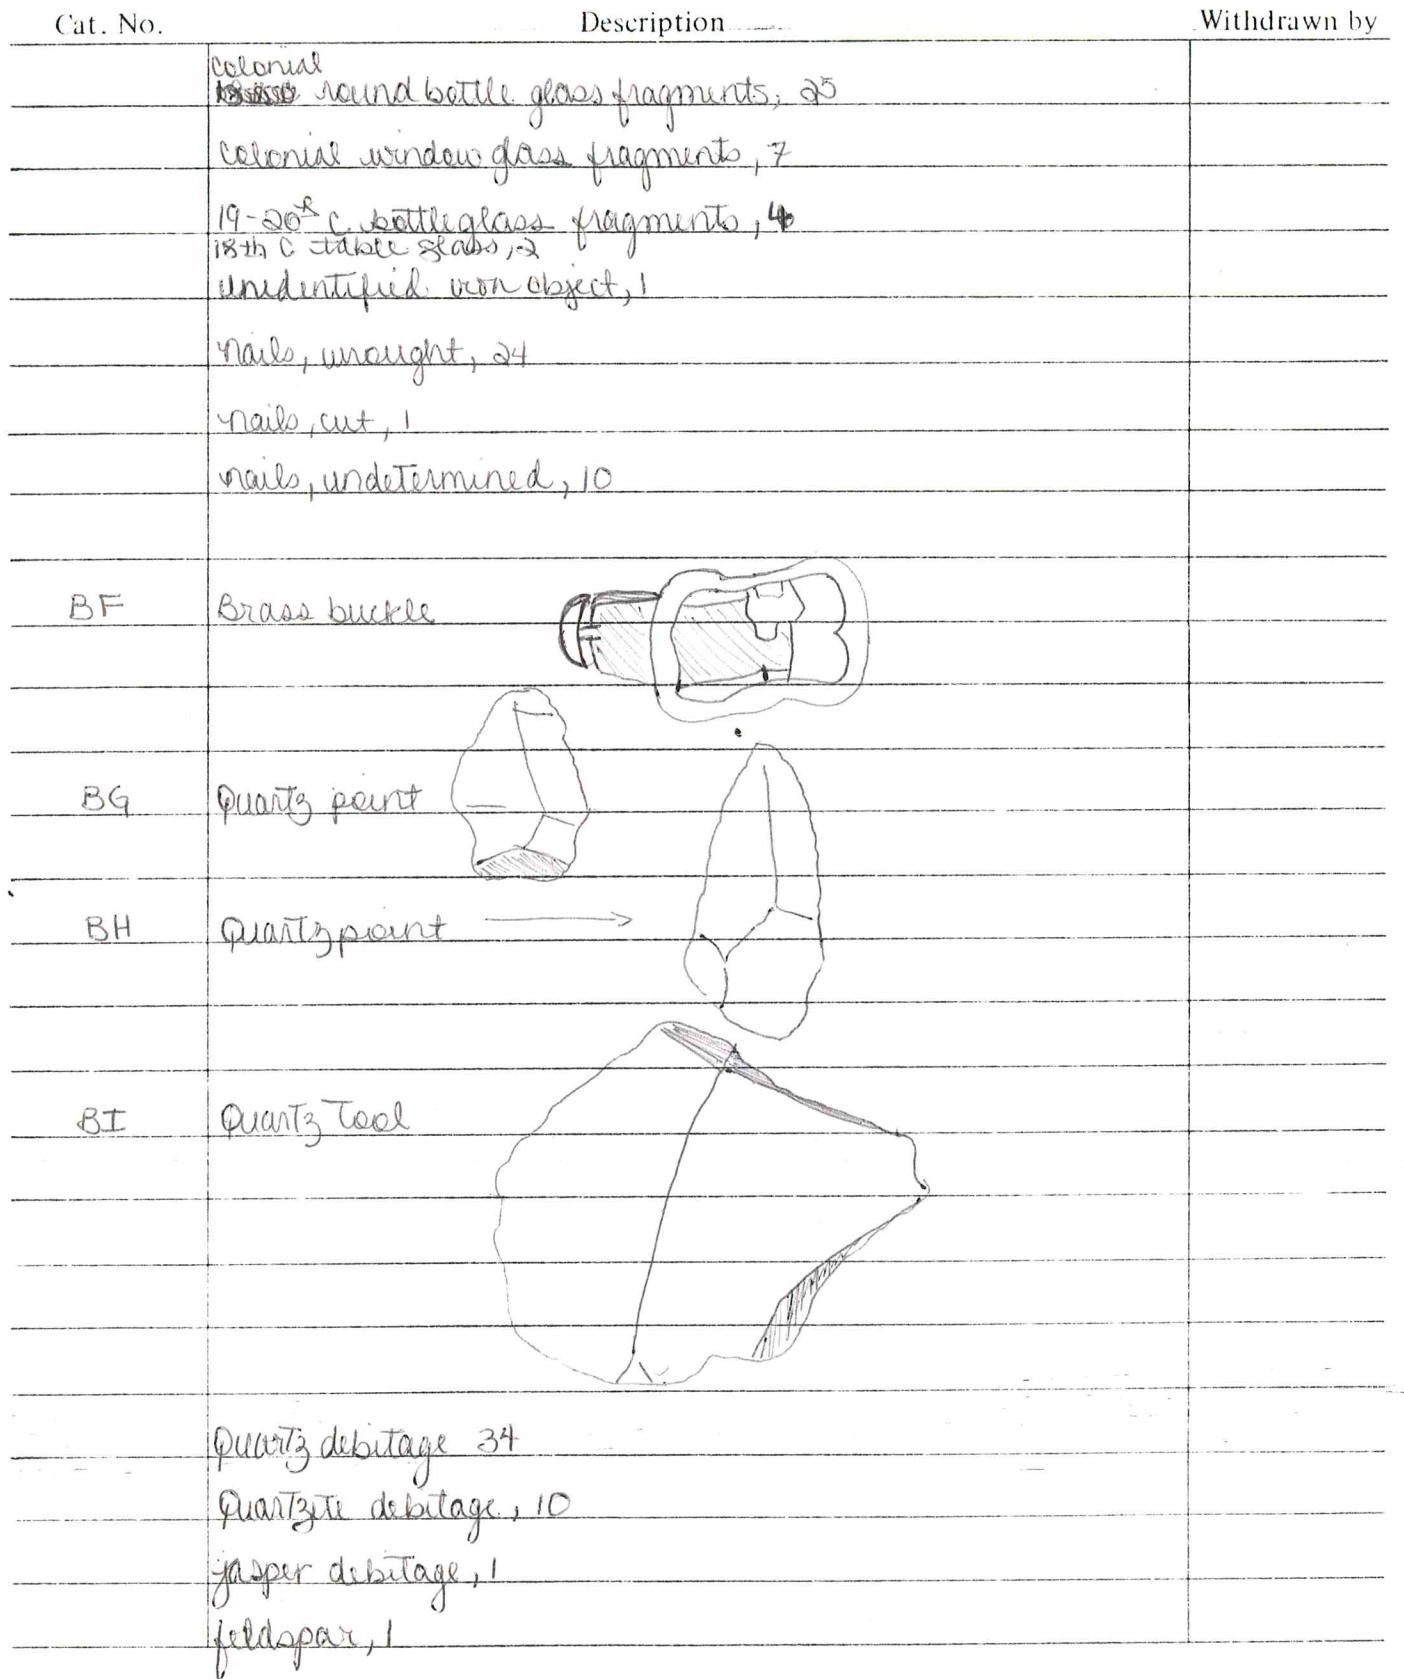 Cat. No. Description Withdrawn by
colonial
round bottle glass fragments, 25
colonial window glass fragments, 7
19-20th C. bottle glass fragments, 4
18th C table glass, 2
unidentified iron object, 1
nails, wrought, 24
nails, cut, 1
nails, undetermined, 10
BF Brass buckle
BG Quartz point
BH Quartz point
BI Quartz Tool
Quartz debitage 34
Quartzite debitage, 10
jasper debitage, 1
feldspar, 1